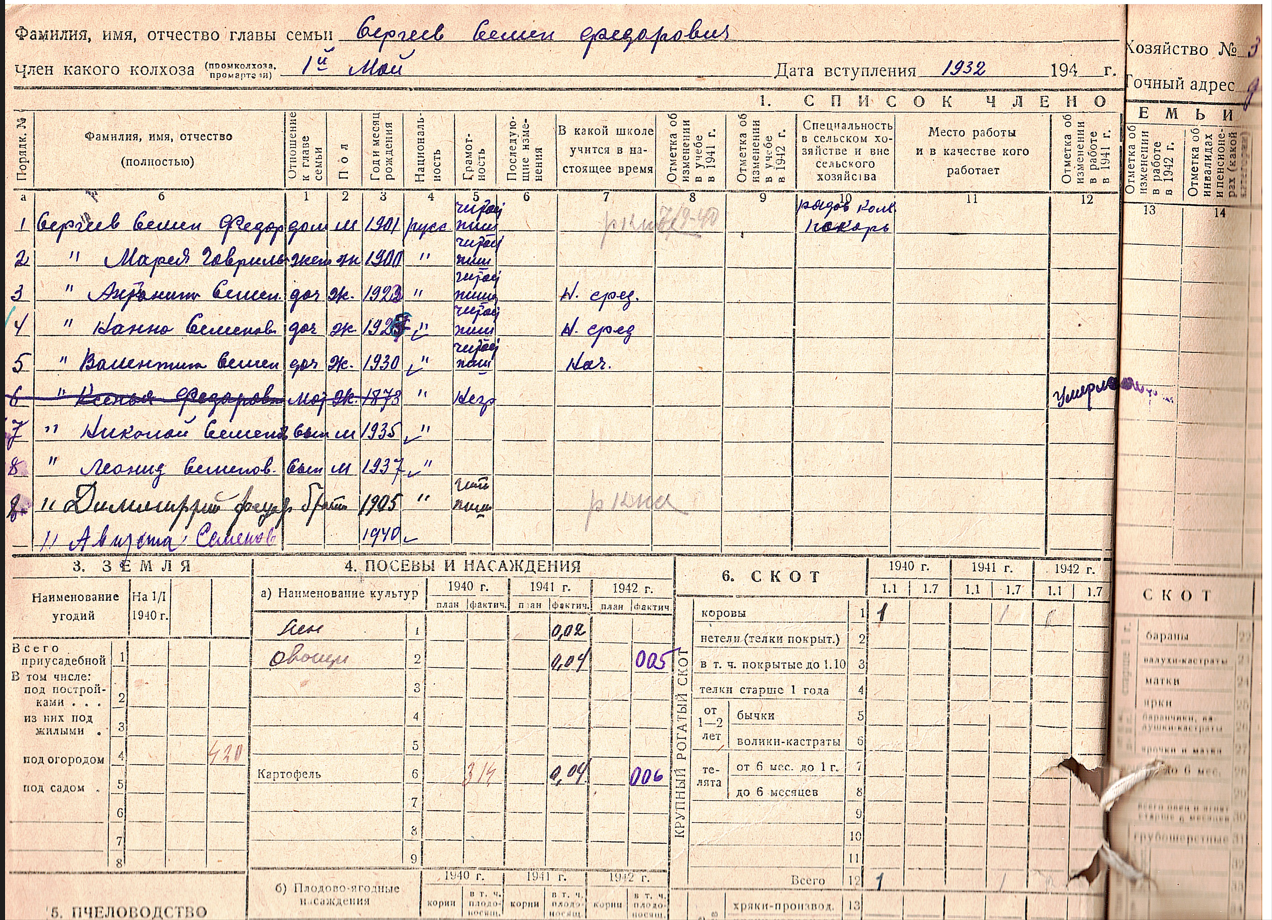 Фамилия, имя, отчество главы семьи Сергеев Семен Федорович
Член какого колхоза (промколхоза, промартели) 1й Май Дата вступления 1932 194 г.
Хозяйство № 3
Точный адрес
1. СПИСОК ЧЛЕНО
ЕМЬИ
Порядк. № Фамилия, имя, отчество (полностью) Отношение к главе семьи Пол Год и месяц рождения Националь-ность Грамот-ность Последую-щие изме-нения В какой школе учится в на-стоящее время Отметка об изменении в учебе в 1941 г. Отметка об изменении в учебе в 1942 г. Специальность в сельском хо-зяйстве и вне сельского хозяйства Место работы и в качестве кого работает Отметка об изменении в работе в 1941 г. Отметка об изменении в работе в 1942 г. Отметка об инвалидах и пенсионе-рах (какой
а б 1 2 3 4 5 6 7 8 9 10 11 12 13 14
1 Сергеев Семен Федор дом м 1901 русс читай пиш рядов колх пекарь
2 " Мария Гавриль жен ж 1900 " читай пиш
3 " Антонит Семен. доч ж. 1923 " читай пиш Н. сред.
4 " Нанно Семенов. доч ж 192 " читай пиш Н. сред
5 " Валентит Семен доч ж. 1930 " читай пиш Нач.
6 " Ксенья Федоровн мат ж. 1873 " Негр Умерла
7 " Николай Семенов сын м 1935 "
8 " Леонид Семенов. сын м 1937 "
" Димитрий брат 1905 " чит пиш
" Августа Семенов 1940
3. ЗЕМЛЯ
Наименование угодий На 1/I 1940 г.
Всего приусадебной 1
В том числе:
под построй-ками . . . 2
из них под жилыми . 3
под огородом 4 420
под садом . 5
6
7
8
5. ПЧЕЛОВОДСТВО
4. ПОСЕВЫ И НАСАЖДЕНИЯ
а) Наименование культур 1940 г. 1941 г. 1942 г.
план фактич. план фактич. план фактич.
Лен 1 0,02
Овощи 2 0,04 005
3
4
5
Картофель 6 0,04 006
7
8
9
б) Плодово-ягодные насаждения 1940 г. 1941 г. 1942 г.
корни в т. ч. плодо-носящ. корни в т. ч. плодо-носящ. корни в т. ч. плодо-носящ.
6. СКОТ 1940 г. 1941 г. 1942 г.
1.1 1.7 1.1 1.7 1.1 1.7
КРУПНЫЙ РОГАТЫЙ СКОТ
коровы 1 1 1
нетели (телки покрыт.) 2
в т. ч. покрытые до 1.10 3
телки старше 1 года 4
от 1—2 лет бычки 5
волики-кастраты 6
те-лята от 6 мес. до 1 г. 7
до 6 месяцев 8
9
10
11
Всего 12 1 1
хряки-производ. 13
СКОТ
бараны 22
валухи-кастраты
матки 24
ярки
баранчики, ва-лушки-кастраты
ярочки и матки 27
до 6 мес.
грубошерстные 31
32